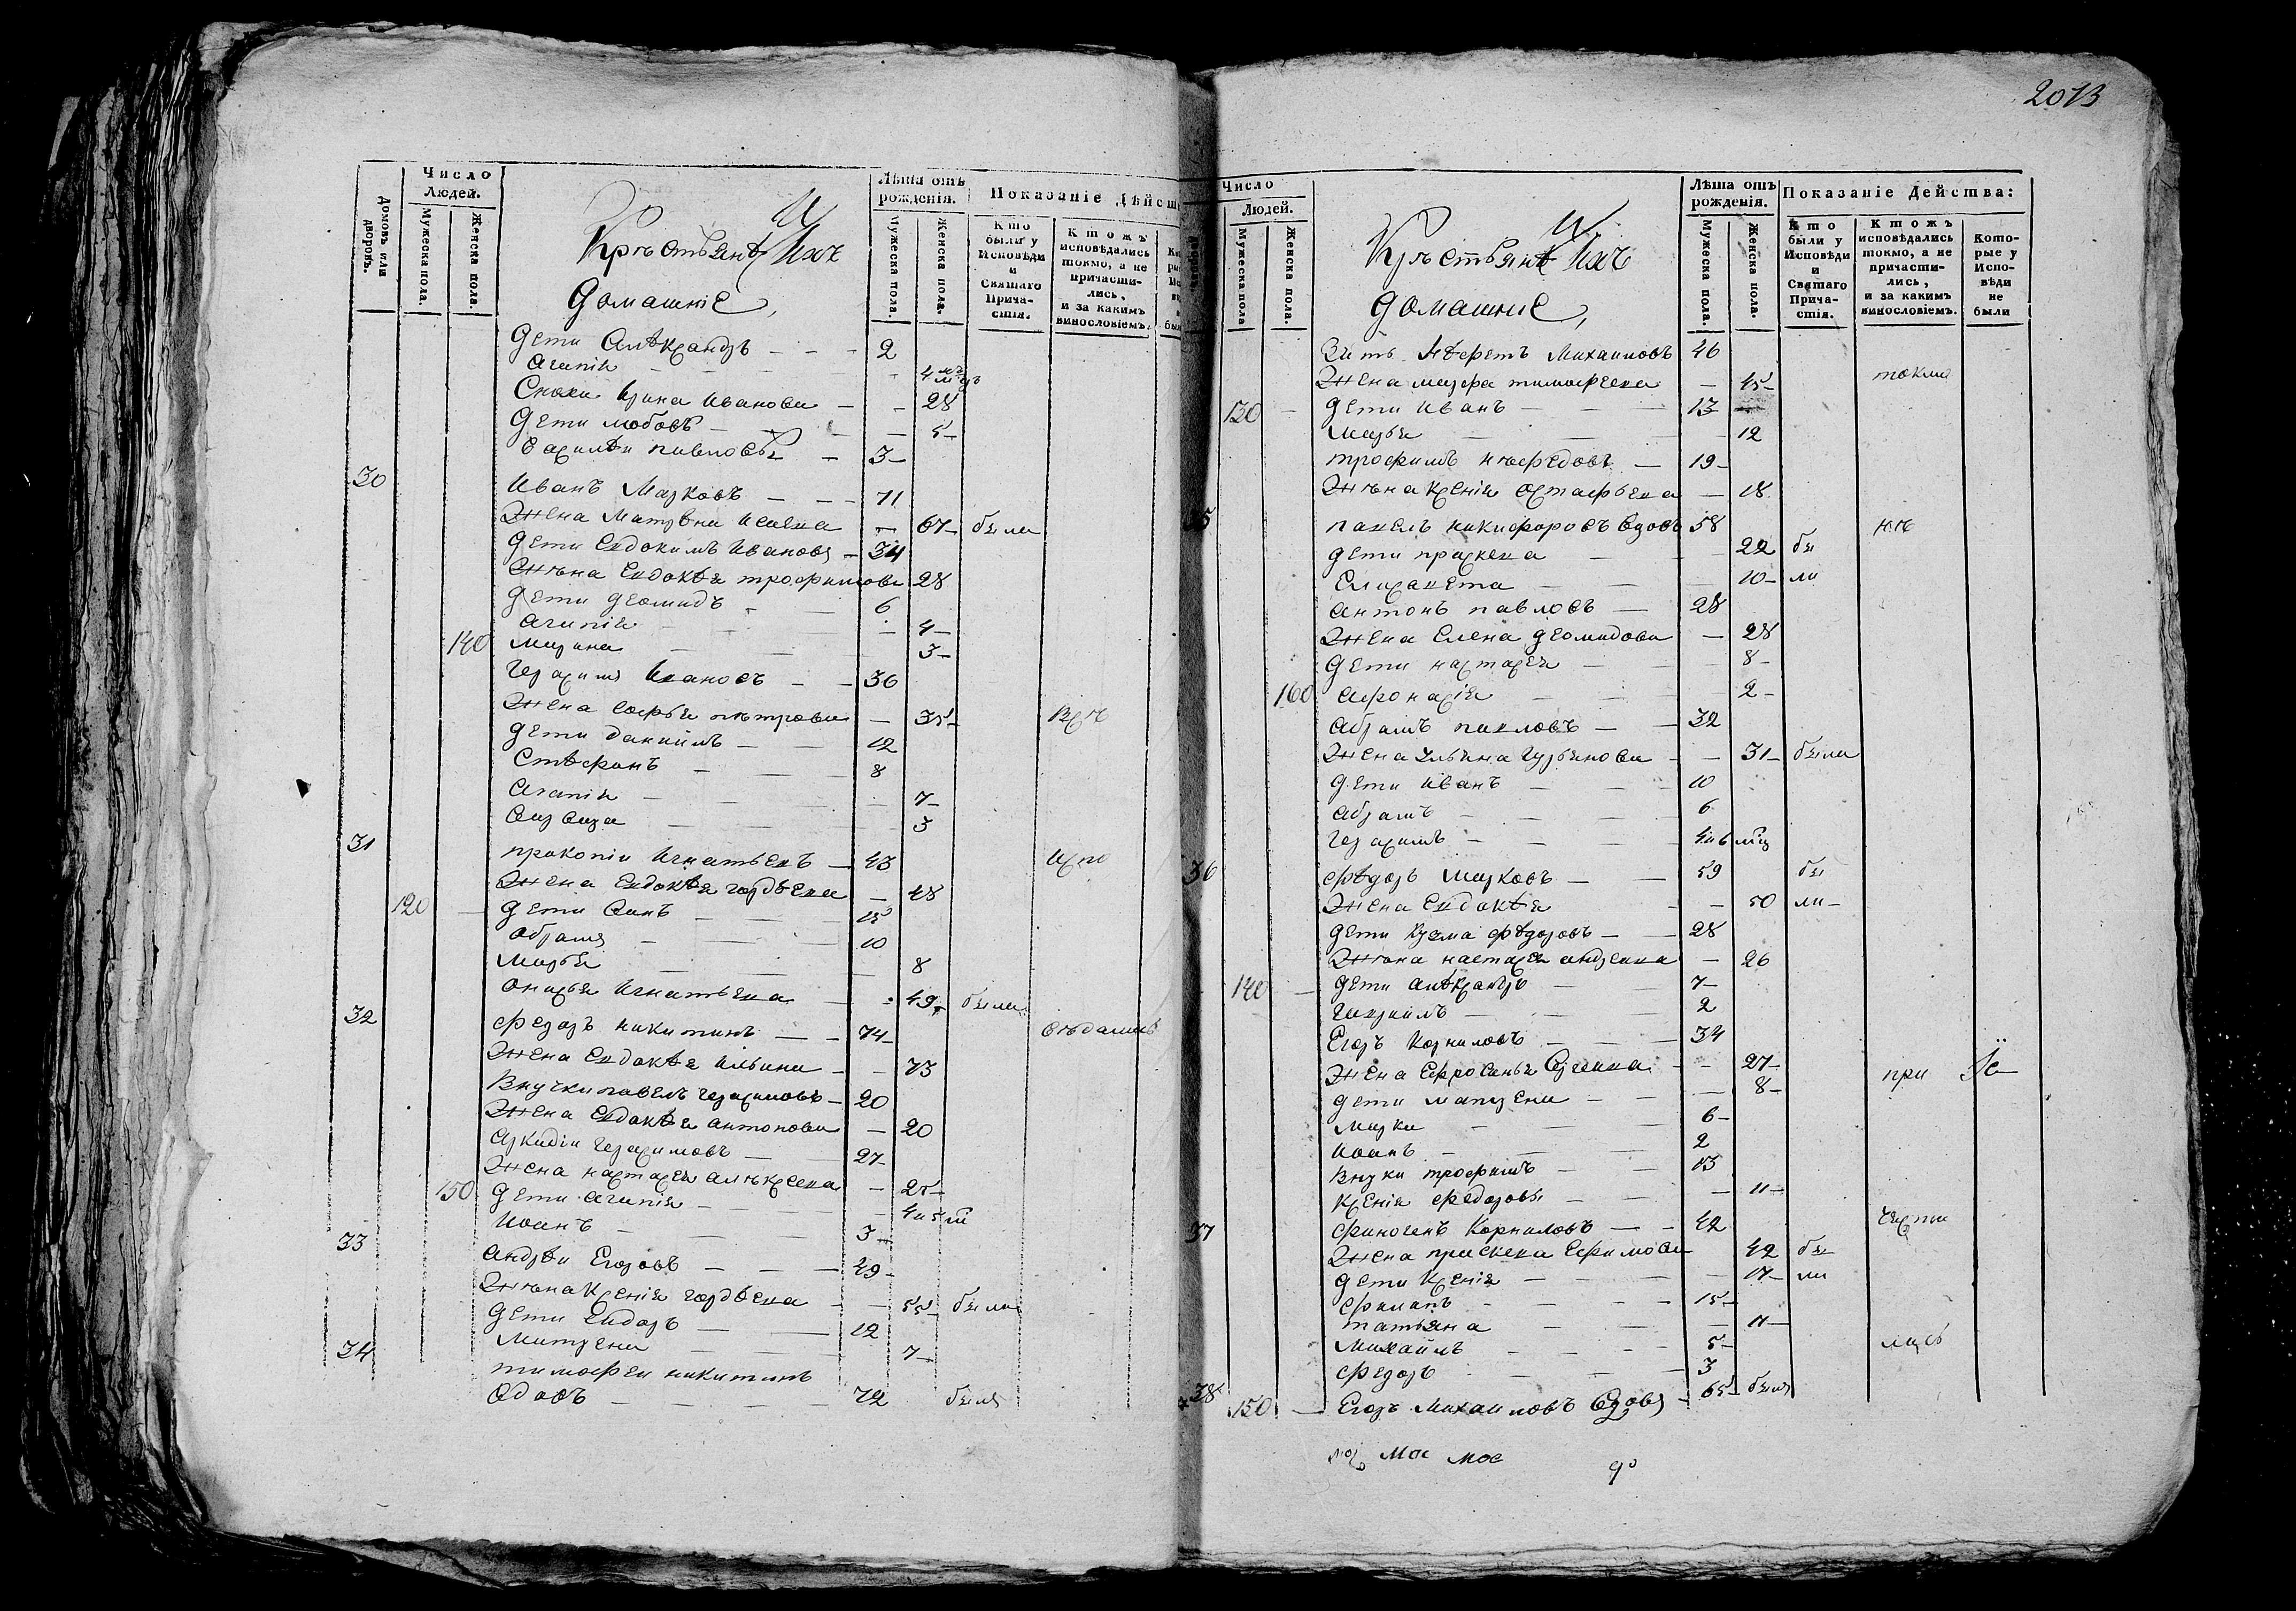 2013
Число Людей.
Лѣта отъ рожденія.
Показаніе Дѣйст
Домовъ или дворовъ.
Мужеска пола.
Женска пола.
Крѣстьянѣ И Ихъ
домашніе,
Мужеска пола.
Женска пола.
Кто были у Исповѣди и Святаго Причастія.
Ктожъ исповѣдались токмо, а не причастились, и за какимъ винословіемъ.
дети Алѣксандръ - - - 2
Агапія - 4
Снохи Ирина Иванова - - 28
дети любовь - 5
Василѣи павловъ - 3
30 Иванъ Марковъ - - - 71
Жена Матрѣна Исаева - 67 были
дети Евдокимъ Ивановъ - 34
Жѣна Евдокѣя трофимова 28
дети деомидъ - 6
Агапія - 4
140 Марина - 3
Герасимъ Ивановъ - - 36
Жена Софья пѣтрова - 35 Всѣ
дети даниилъ - 12
Стѣфанъ - 8
Агапія - 7
3
31 прокопіи Игнатьевъ - 43 испо
Жена Евдокѣя гордѣева - 48
120 - дети - 15
Обрамъ - 10
Марья - 8
Онисья Игнатьева - 49 были
32 федоръ никитинъ - 74 вѣдались
Жена Евдокѣя Ильина - - 73
Внучки павелъ герасимовъ - 20
Жена Евдокѣя антонова - 20
Аркадіи герасимовъ - 27
Жена настасея алѣксеева - 25
150 дети агапія -
Иванъ - 3
33 Андрѣи Егоровъ - 49
Жѣна Ксенія гордѣева - 55 были
дети - 12
Матрена - 7
34 тимофеи никитинъ
вдовъ - 72 былъ
Число Людей.
Лѣта отъ рожденія.
Показаніе Действа:
Мужеска пола
Женска пола.
Крѣстьянѣ И Ихъ
домашние,
Мужеска пола.
Женска пола.
Кто были у Исповѣди и Святаго Причастія.
Ктожъ исповѣдались токмо, а не причастились, и за какимъ винословіемъ.
Которые у Исповѣди не были
Зять Михаиловъ 46
Жена марфа тимофеева - 45 токмо
130 - дети Иванъ - 13
Марья - 12
трофимъ нѣфедовъ - 19
Жѣна Ксенія Остафьева - 18
35 павелъ никифоровъ вдовъ 58 нѣ
дети праскева - 22 бы
Елизавета - 10 ли
антонъ павловъ - 28
Жена Елена деомидова - 28
дети настасея - 8
160 афонасія - 2
абрамъ павловъ - 32
Жена Ульяна Гурьянова - 31 были
дети Иванъ - 10
абрамъ - 6
герасимъ - 4 и 6
36 фѣдоръ Марковъ - 59 бы
Жена Евдокѣя - 50 ли
дети Кузма фѣдоровъ - 28
Жѣна настасея андреева - 26
140 - дети алѣксандръ - 7
гавріилъ - 2
Егоръ Корниловъ - 34
Жена Ефросинья Сергеева - 27 при
дети матрена - 8
Марки - 6
Иванъ - 2
Внуки трофимъ - 13
Ксенія федорова - 11
37 финогенъ Корниловъ - - 42 части
Жена праскева Ефимова 42 бы
дети Ксенія - 17 ли
филипъ - 15
татьяна - 11
Михаилъ - 5 лись
федоръ - 3
38 150 - Егоръ Михаиловъ вдовъ - 65 былъ